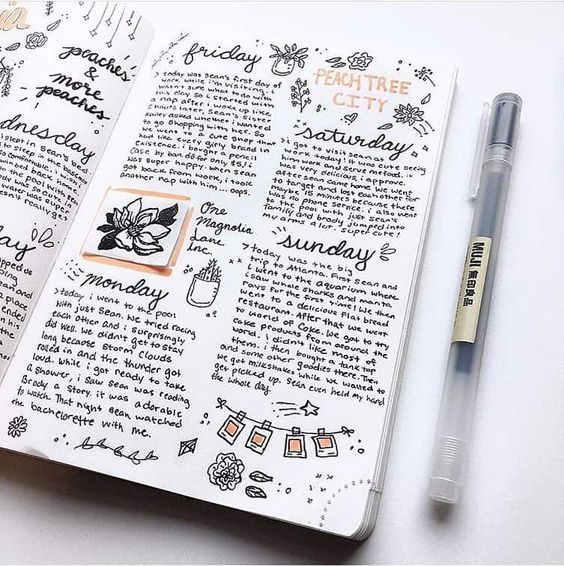 peaches
&
more
peaches
friday
today was sean's first day of
work while i'm visiting. i
wasn't sure what to do with
this day so i started with
a nap after i woke up like
2 hours later, sean's sister
kailey asked whether i wanted
to go shopping with her. so
we went to a cute shop that
carries every girly brand in
existence. i bought a pencil
case by ban do for only $5! i
was super happy. when sean
got back from work, i took
another nap with him... oops.
One
Magnolia
Lane
inc.
monday
today i went to the pool
with just sean. we tried racing
each other and i surprisingly
did well. we didn't get to stay
long because storm clouds
rolled in and the thunder got
loud. while i got ready to take
a shower, i saw sean was reading
Brody a story. it was adorable
to watch. that night sean watched
the bachelorette with me.
PEACHTREE
CITY
saturday
i got to visit sean at
work today! it was cute seeing
him work and serve food. it
was very delicious, i approve.
after sean came home we went
to target and lost each other for
maybe 15 minutes because there
was no phone service. i also went
to the pool with just sean's
family and brody jumped into
my arms a lot. super cute!
sunday
today was the big
trip to Atlanta. First sean and
i went to the aquarium where
i saw whale sharks and manta
rays for the first time! we then
went to a delicious flat bread
restaurant. After that we went
to world of Coke. We got to try
coke products from around the
world. i didn't like most of
them. i then bought a tank top
and some other goodies there. Then
we got milkshakes while we waited to
get picked up. sean even held my hand
the whole day.
MUJI 無印良品